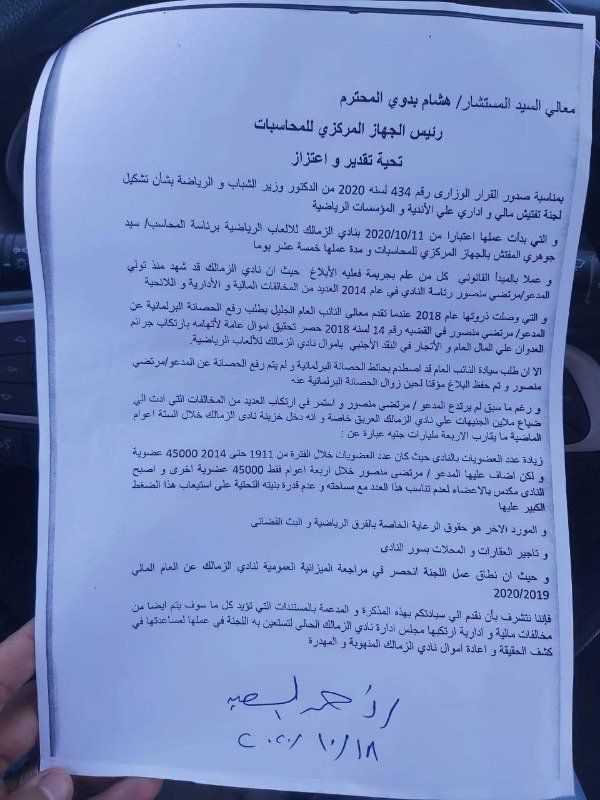 معالي السيد المستشار/ هشام بدوي المحترم
رئيس الجهاز المركزي للمحاسبات
تحية تقدير و اعتزاز
بمناسبة صدور القرار الوزارى رقم 434 لسنه 2020 من الدكتور وزير الشباب و الرياضة بشأن تشكيل
لجنة تفتيش مالي و اداري علي الأندية و المؤسسات الرياضية
و التي بدأت عملها اعتبارا من 2020/10/11 بنادي الزمالك للالعاب الرياضية برئاسة المحاسب/ سيد
جوهري المفتش بالجهاز المركزي للمحاسبات و مدة عملها خمسة عشر يوما
و عملا بالمبدأ القانوني كل من علم بجريمة فعليه الأبلاغ حيث ان نادي الزمالك قد شهد منذ تولي
المدعو/مرتضي منصور رئاسة النادي في عام 2014 العديد من المخالفات المالية و الأدارية و اللائحية
و التي وصلت ذروتها عام 2018 عندما تقدم معالي النائب العام الجليل بطلب رفع الحصانة البرلمانية عن
المدعو/ مرتضي منصور في القضيه رقم 14 لسنه 2018 حصر تحقيق اموال عامة لأتهامه بارتكاب جرائم
العدوان علي المال العام و الأتجار في النقد الأجنبي باموال نادي الزمالك للألعاب الرياضية.
الا ان طلب سيادة النائب العام قد اصطدم بحائط الحصانة البرلمانية و لم يتم رفع الحصانة عن المدعو/مرتضي
منصور و تم حفظ البلاغ مؤقتا لحين زوال الحصانة البرلمانية عنه
و رغم ما سبق لم يرتدع المدعو / مرتضي منصور و استمر في ارتكاب العديد من المخالفات التي ادت الي
ضياع ملاين الجنيهات علي نادي الزمالك العريق خاصة و انه دخل خزينة نادي الزمالك خلال الستة اعوام
الماضية ما يقارب الاربعة مليارات جنيه عبارة عن :
زيادة عدد العضويات بالنادى حيث كان عدد العضويات خلال الفترة من 1911 حتى 2014 45000 عضوية
و لكن اضاف عليها المدعو / مرتضى منصور خلال اربعة اعوام فقط 45000 عضوية اخرى و اصبح
النادى مكدس بالاعضاء لعدم تناسب هذا العدد مع مساحته و عدم قدرة بنيته التحتية على استيعاب هذا الضغط
الكبير عليها
و المورد الاخر هو حقوق الرعاية الخاصة بالفرق الرياضية و البث الفضائى
و تاجير العقارات و المحلات بسور النادى
و حيث ان نطاق عمل اللجنة انحصر في مراجعة الميزانية العمومية لنادي الزمالك عن العام المالي
2020/2019
فإننا نتشرف بأن نقدم الي سيادتكم بهذه المذكرة و المدعمة بالمستندات التي تؤيد كل ما سوف يتم ايضا من
مخالفات مالية و ادارية ارتكبها مجلس ادارة نادي الزمالك الحالي لتستعين به اللجنة في عملها لمساعدتها في
كشف الحقيقة و اعادة اموال نادي الزمالك المنهوبة و المهدرة
٢٠٢٠/١٠/١٨